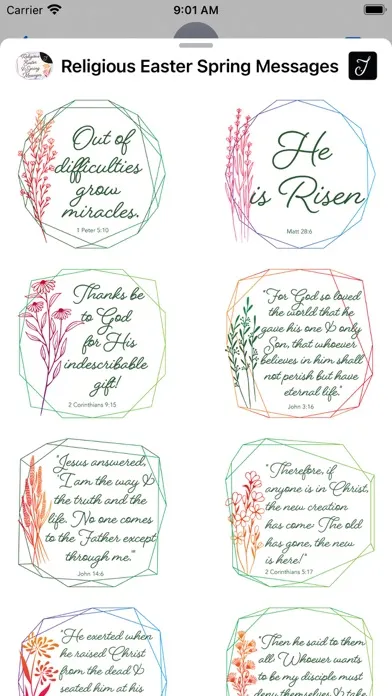 Carrier 9:01 AM
Religious
Easter
& Spring
Messages
Religious Easter Spring Messages
Out of
difficulties
grow
miracles.
1 Peter 5:10
He
is Risen
Matt 28:6
Thanks be
to God
for His
indescribable
gift!
2 Corinthians 9:15
"For God so loved
the world that he
gave his one & only
Son, that whoever
believes in him shall
not perish but have
eternal life."
John 3:16
"Jesus answered,
"I am the way &
the truth and the
life. No one comes
to the Father except
through me."
John 14:6
"Therefore, if
anyone is in Christ,
the new creation
has come: The old
has gone, the new
is here!"
2 Corinthians 5:17
"He exerted when
he raised Christ
from the dead &
seated him at his
"Then he said to them
all: Whoever wants
to be my disciple must
deny themselves & take